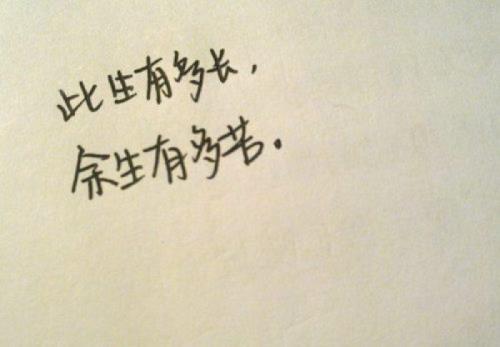 此生有多长，
余生有多苦．